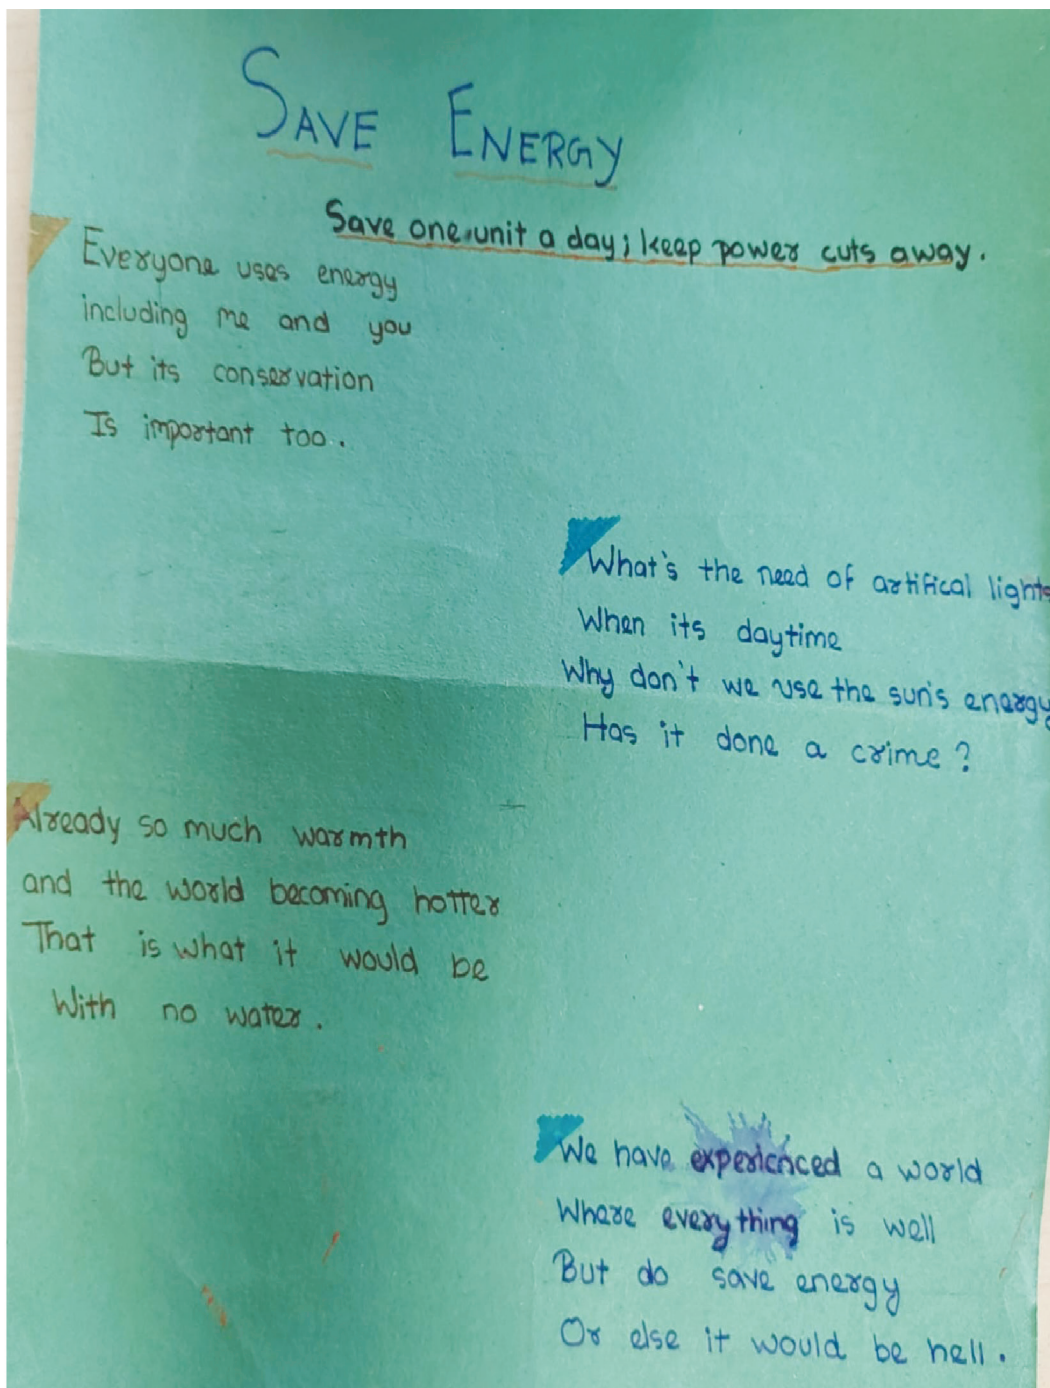 SAVE ENERGY
Save one unit a day; keep power cuts away.
Everyone uses energy
including me and you
But its conservation
Is important too..
What's the need of artifical lights
When its daytime
Why don't we use the sun's energy
Has it done a crime?
Already so much warmth
and the world becoming hotter
That is what it would be
With no water.
We have experienced a world
Where everything is well
But do save energy
Or else it would be hell.